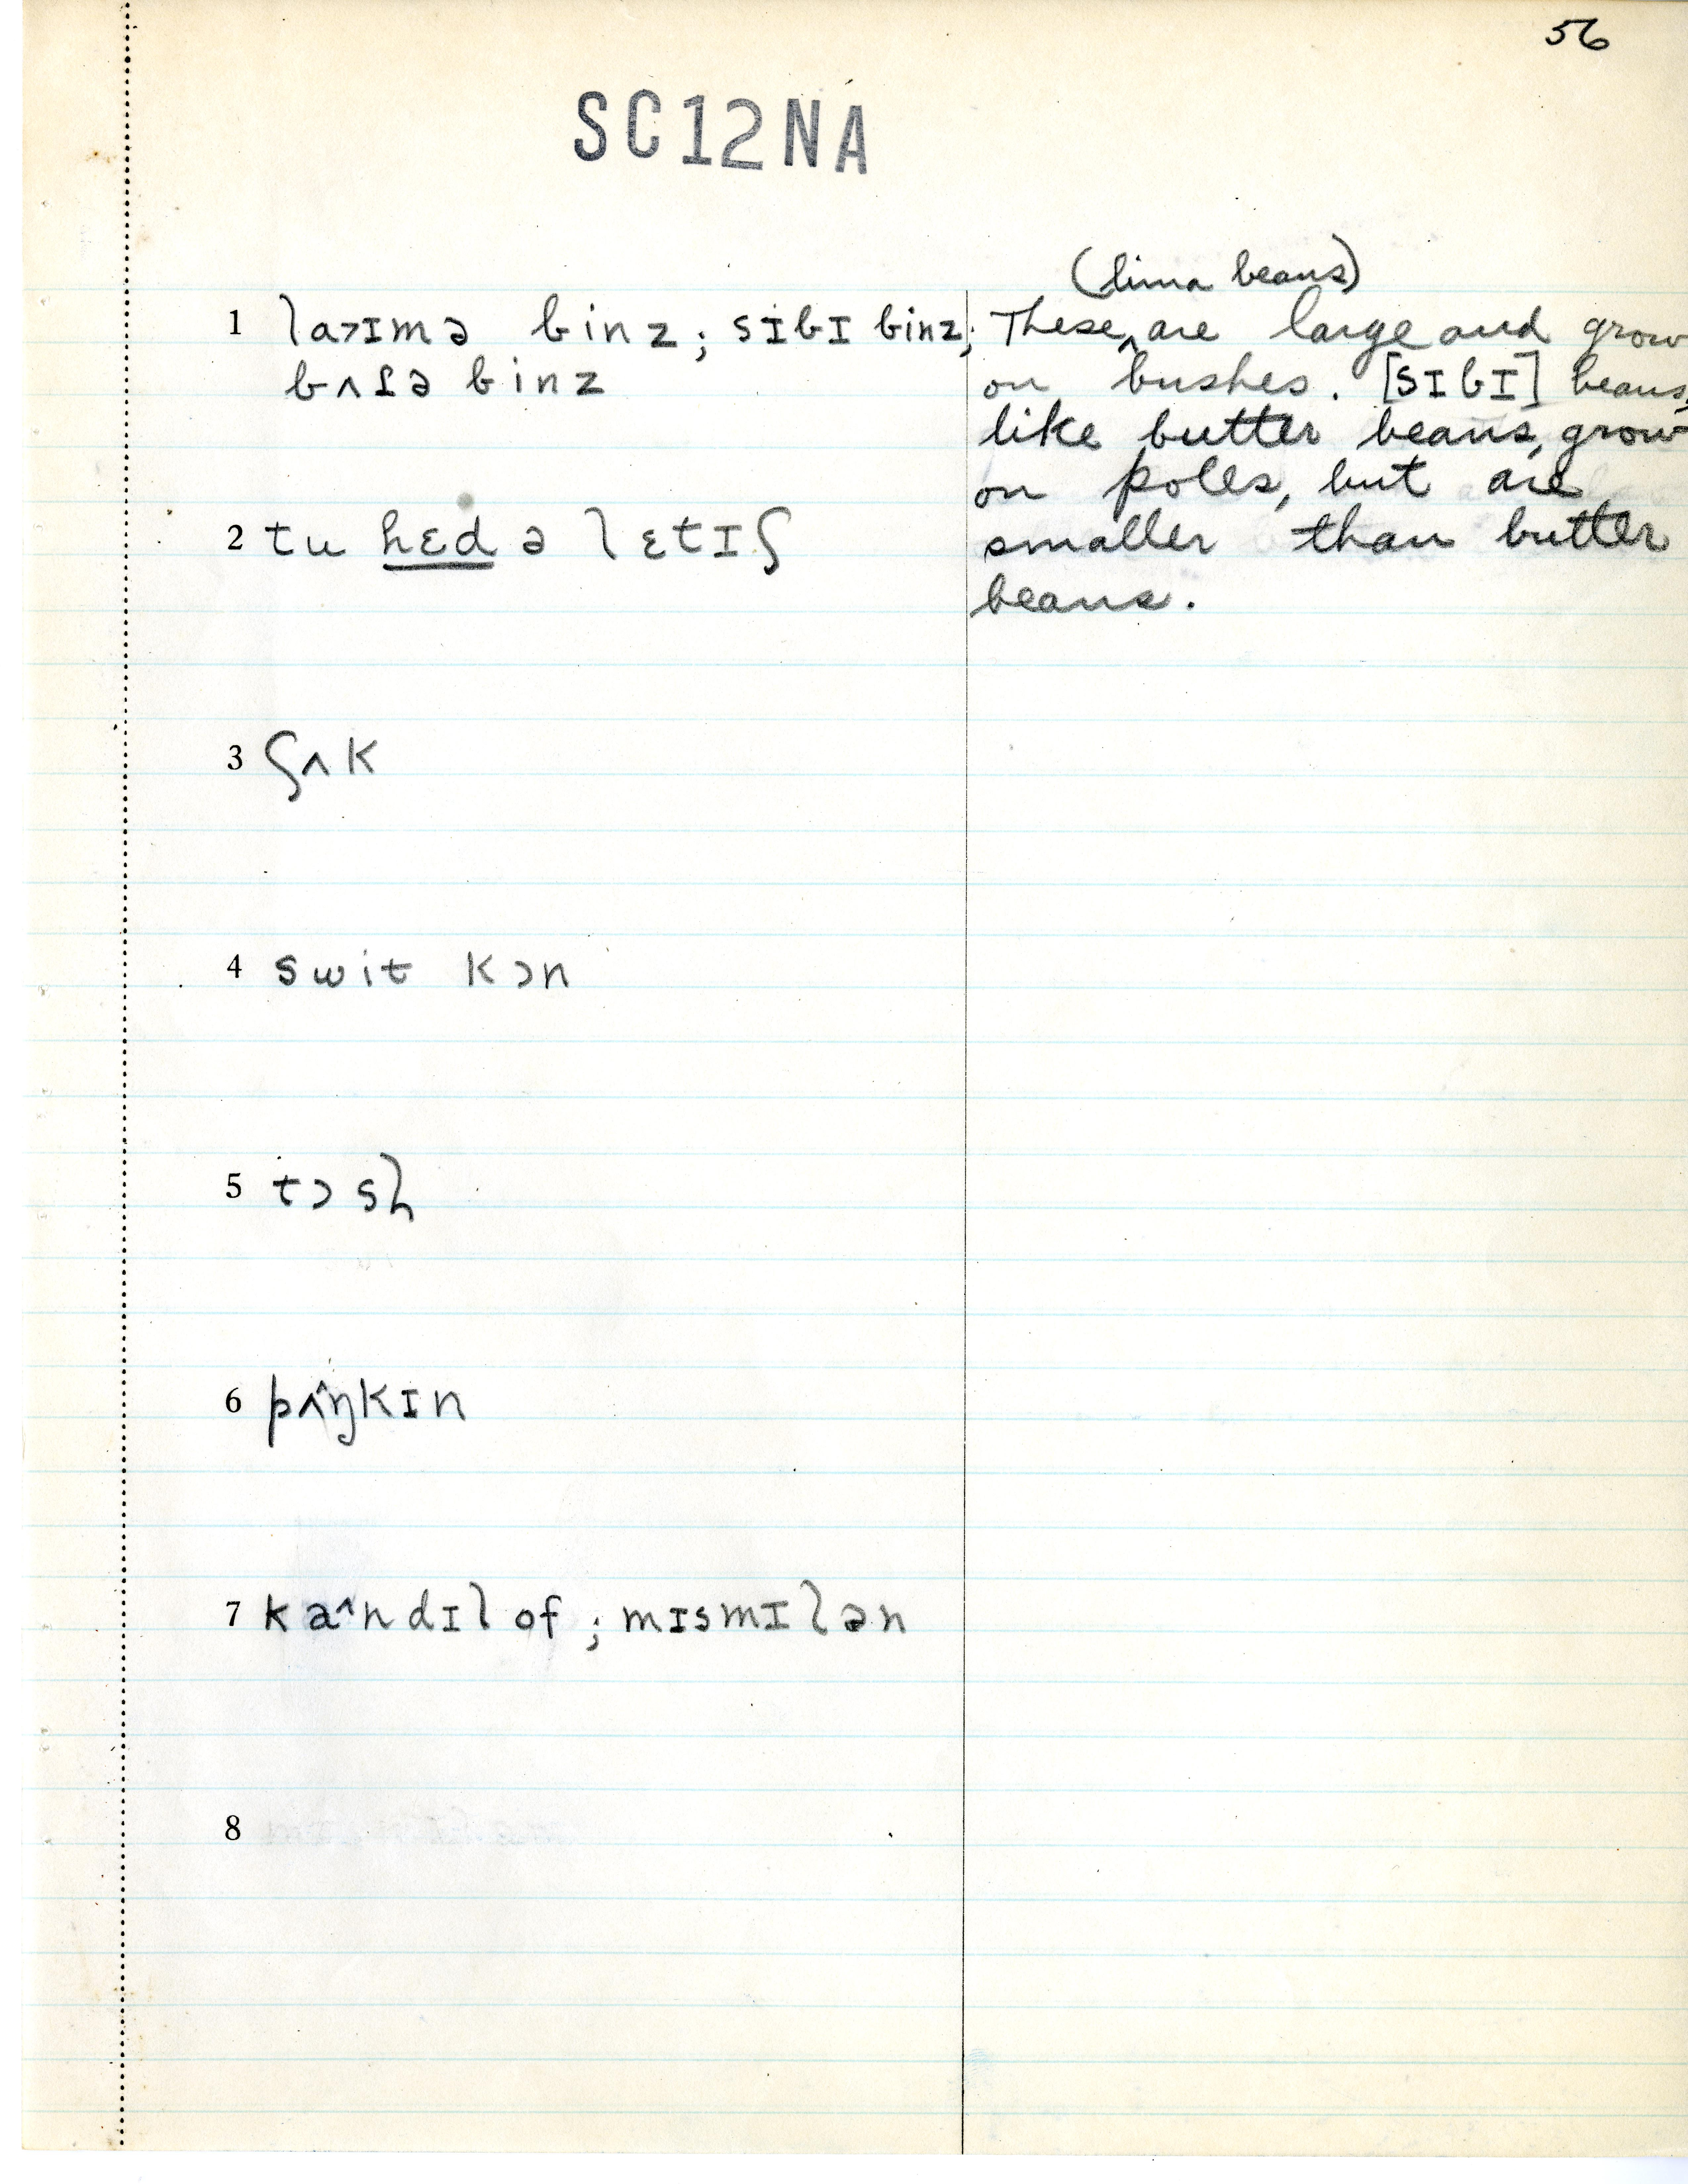 56
SC12NA
1 la>ɪmə binz; sɪbɪ binz;
bʌt̬ə binz
(lima beans)
These ^ are large and grow
on bushes. [sɪbɪ] beans,
like butter beans, grow
on poles, but are
smaller than butter
beans.
2 tu hɛd ə lɛtɪʃ
3 ʃʌk
4 swit kɔn
5 tɔsl̩
6 pʌ^ŋkɪn
7 ka^ndɪlof; mɪsmɪlən
8